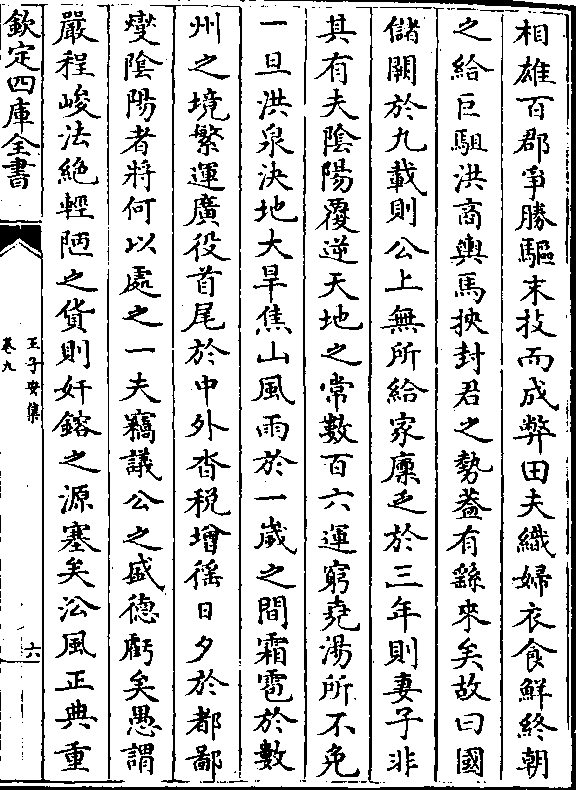 相雄百郡爭勝驅末技而成弊田夫織婦衣食鮮終朝
之給巨駔洪商輿馬挾封君之勢葢有繇來矣故曰國
儲闕於九載則公上無所給家廩乏於三年則妻子非
其有夫陰陽覆逆天地之常數百六運窮堯湯所不免
一旦洪泉決地大旱焦山風雨於一嵗之間霜雹於數
州之境繁運廣役首尾於中外沓税增徭日夕於都鄙
燮陰陽者將何以處之一夫竊議公之盛德虧矣愚謂
嚴程峻法絶輕陋之貨則奸鎔之源塞矣㳂風正典重
欽定四庫全書
王子安集
卷九
六